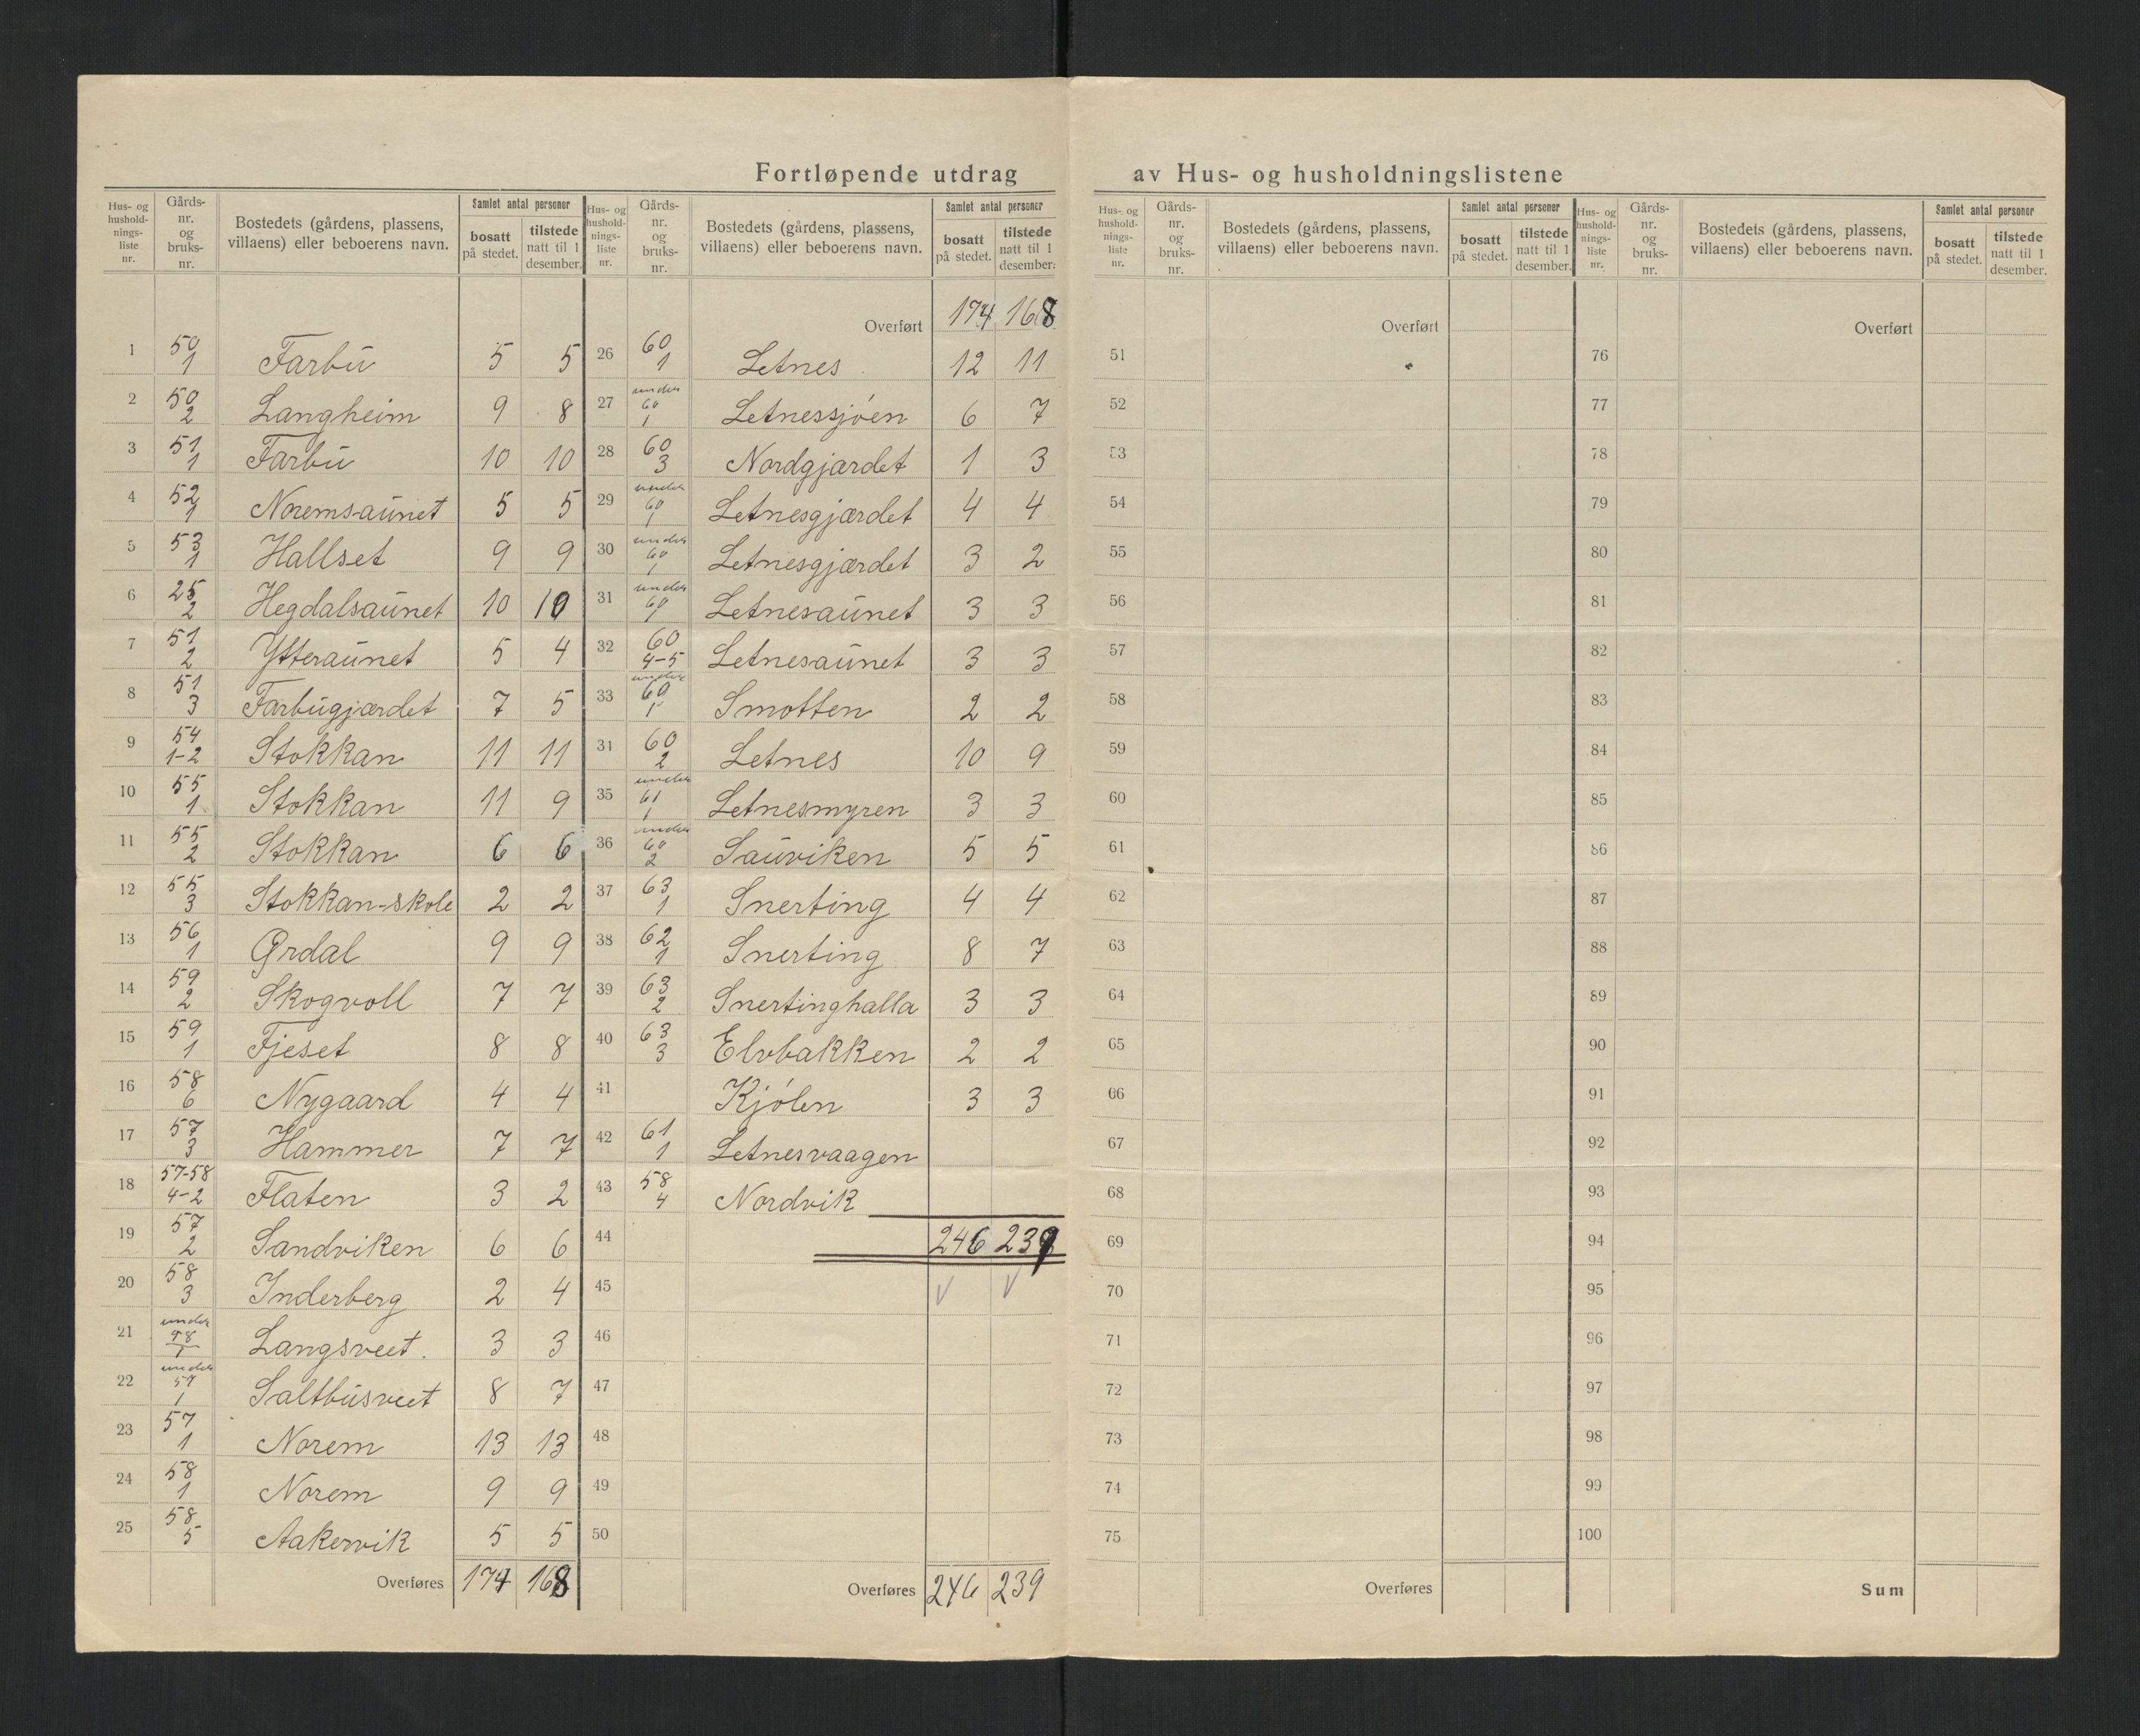 Fortløpende utdrag av Hus- og husholdningslistene
Hus- og hushold-nings-liste nr. | Gårds-nr. og bruks-nr. | Bostedets (gårdens, plassens, villaens) eller beboerens navn. | Samlet antal personer | bosatt på stedet. | tilstede natt til 1 desember.
1 50 1 Farbu 5 5
2 50 2 Langheim 9 8
3 51 1 Farbu 10 10
4 52 1 Noremsaunet 5 5
5 53 1 Hallset 9 9
6 25 2 Hegdalsaunet 10 10
7 51 2 Ytteraunet 5 4
8 51 3 Farbugjærdet 7 5
9 54 1-2 Stokkan 11 11
10 55 1 Stokkan 11 9
11 55 2 Stokkan 6 6
12 55 3 Stokkan-skole 2 2
13 56 1 Ørdal 9 9
14 59 2 Skogvoll 7 7
15 59 1 Fjeset 8 8
16 58 6 Nygaard 4 4
17 57 3 Hammer 7 7
18 57-58 4-2 Flaten 3 2
19 57 2 Sandviken 6 6
20 58 3 Inderberg 2 4
21 under 58 1 Langsveet. 3 3
22 under 57 1 Saltbusveet 8 7
23 57 1 Norem 13 13
24 58 1 Norem 9 9
25 58 5 Aakervik 5 5
Overføres 174 168
Hus- og hushold-nings-liste nr. | Gårds-nr. og bruks-nr. | Bostedets (gårdens, plassens, villaens) eller beboerens navn. | Samlet antal personer | bosatt på stedet. | tilstede natt til 1 desember.
Overført 174 168
26 60 1 Letnes 12 11
27 under 60 1 Letnessjøen 6 7
28 60 3 Nordgjærdet 1 3
29 under 60 1 Letnesgjærdet 4 4
30 under 60 1 Letnesgjærdet 3 2
31 under 60 1 Letnesaunet 3 3
32 60 4-5 Letnesaunet 3 3
33 under 60 1 Smotten 2 2
34 60 2 Letnes 10 9
35 under 61 1 Letnesmyren 3 3
36 under 60 2 Sauviken 5 5
37 63 1 Snerting 4 4
38 62 1 Snerting 8 7
39 63 2 Snertinghalla 3 3
40 63 3 Elvbakken 2 2
41 Kjølen 3 3
42 61 1 Letnesvaagen
43 58 4 Nordvik
44 246 239
45
46
47
48
49
50
Overføres 246 239
Hus- og hushold-nings-liste nr. | Gårds-nr. og bruks-nr. | Bostedets (gårdens, plassens, villaens) eller beboerens navn. | Samlet antal personer | bosatt på stedet. | tilstede natt til 1 desember.
Overført
51
52
53
54
55
56
57
58
59
60
61
62
63
64
65
66
67
68
69
70
71
72
73
74
75
Overføres
Hus- og hushold-nings-liste nr. | Gårds-nr. og bruks-nr. | Bostedets (gårdens, plassens, villaens) eller beboerens navn. | Samlet antal personer | bosatt på stedet. | tilstede natt til 1 desember.
Overført
76
77
78
79
80
81
82
83
84
85
86
87
88
89
90
91
92
93
94
95
96
97
98
99
100
Sum